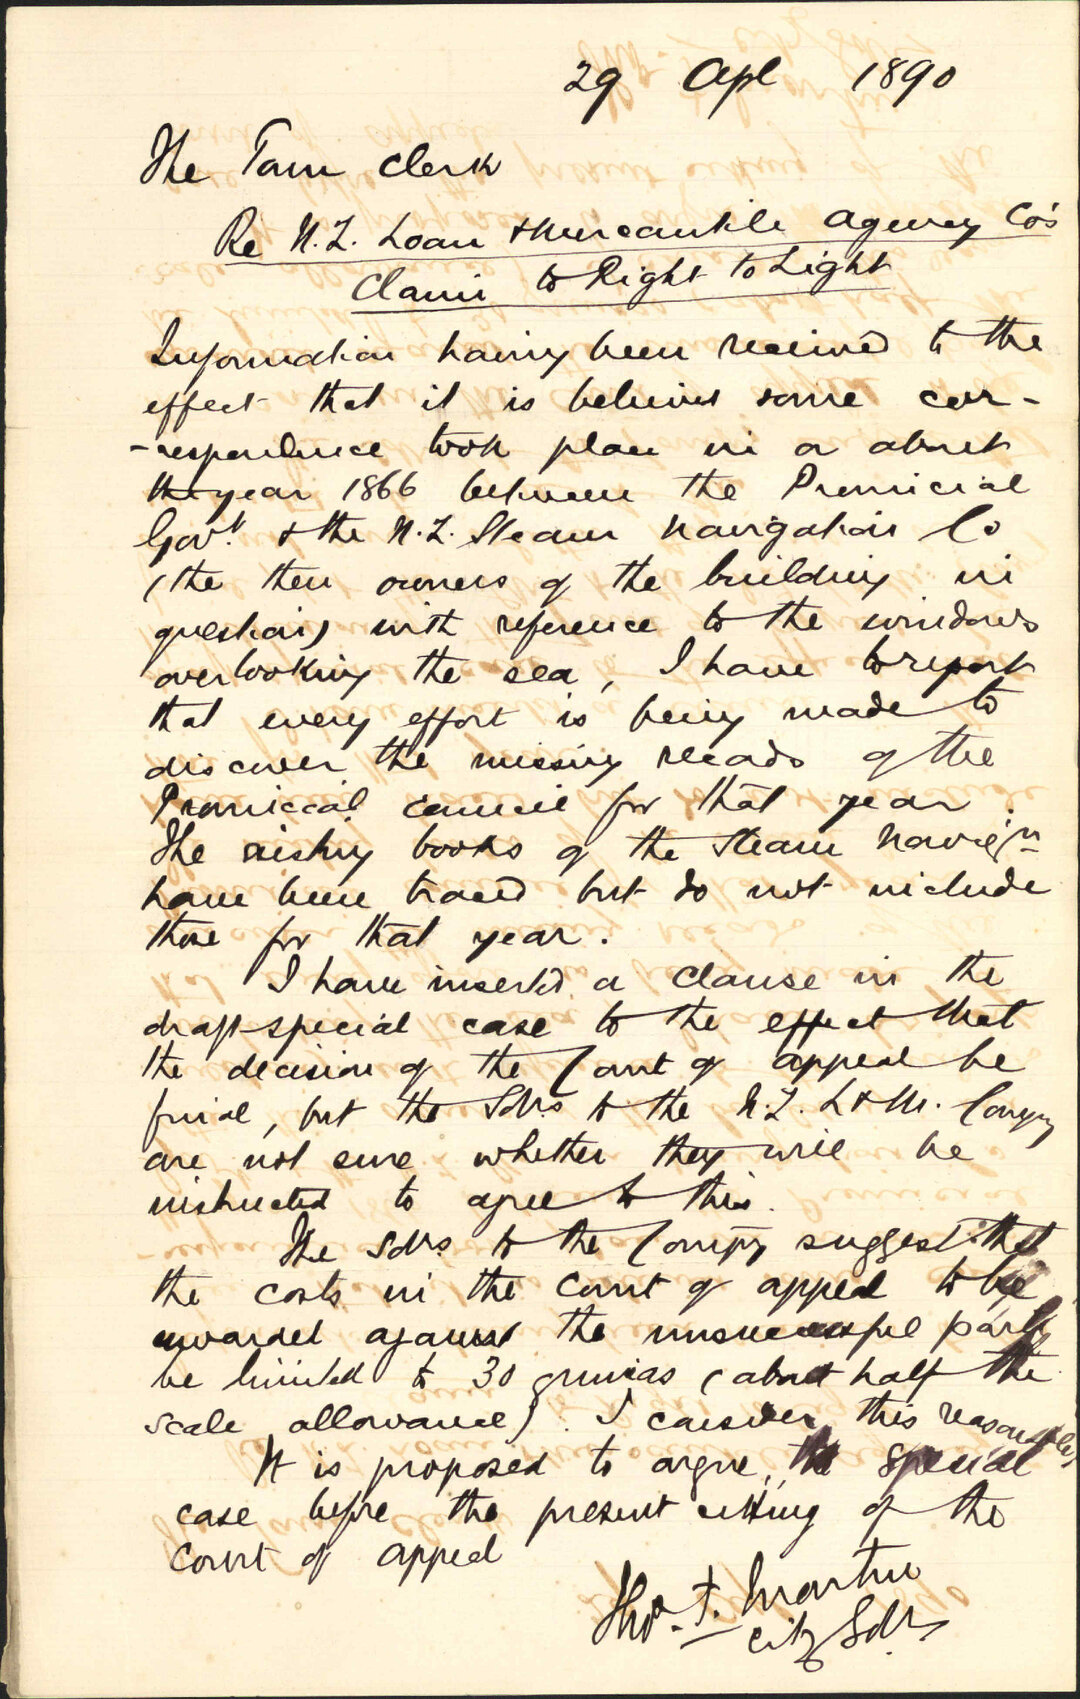 29 Apl 1890
The Town Clerk
Re N.Z. Loan & Mercantile Agency Co's
Claim to Right to Light
Information having been received to the
effect that it is believed some cor-
-respondence took place in or about
the year 1866 between the Provincial
Govt. & the N.Z. Steam Navigation Co
(the then owners of the building in
question) with reference to the windows
overlooking the sea, I have to report
that every effort is being made to
discover the missing records of the
Provincial Council for that year.
The existing books of the Steam Navign
have been traced but do not include
those for that year.
I have inserted a clause in the
draft special case to the effect that
the decision of the Court of Appeal be
final, but the Solrs to the N.Z. L & M. Compy
are not sure whether they will be
instructed to agree to this.
The Solrs to the Compy suggest that
the costs in the Court of Appeal to be
awarded against the unsuccessful party
be limited to 30 guineas (about half the
scale allowance). I consider this reasonable,
It is proposed to argue the special
case before the present sitting of the
Court of Appeal
Thos. F. Martin
City Solr.